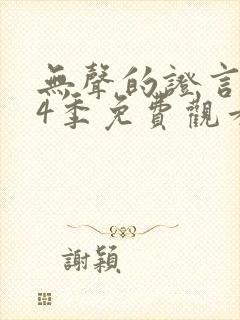 無聲的證言
4季免費觀
謝穎